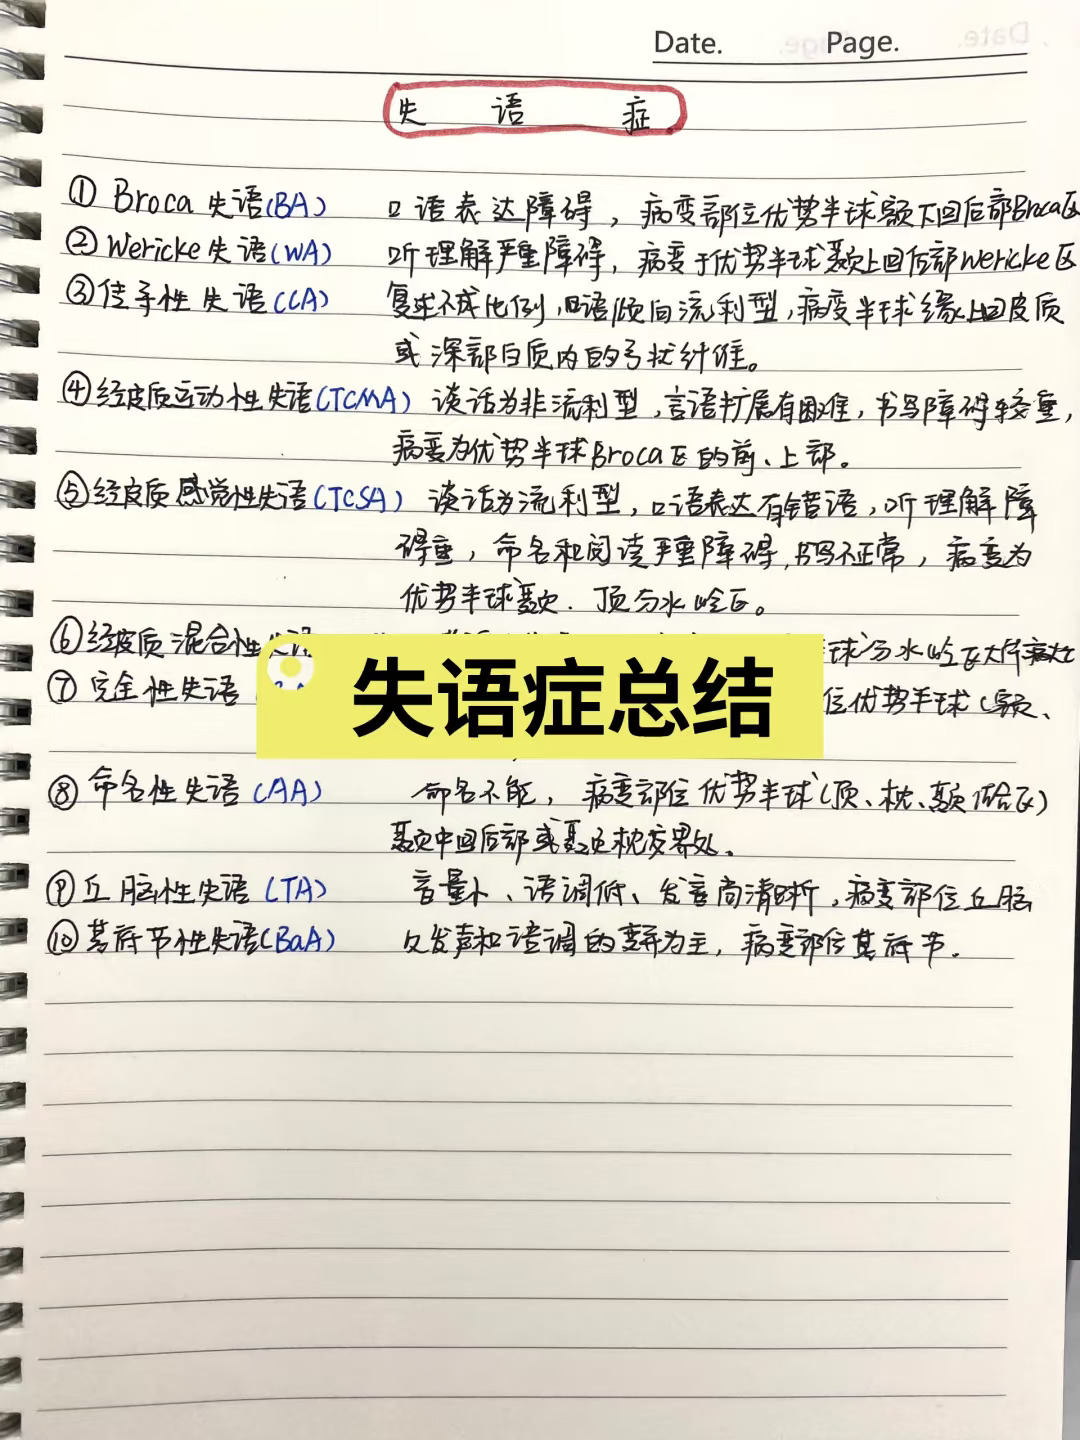 Date. Page.
失语症
① Broca失语(BA) 口语表达障碍，病变部位优势半球额下回后部Broca区
② Wericke失语(WA) 听理解严重障碍，病变于优势半球颞上回后部Wericke区
③传导性失语(CCA) 复述不成比例，口语倾向流利型，病变半球缘上回皮质
或深部白质内的弓状纤维。
④经皮质运动性失语(TCMA) 谈话为非流利型，言语扩展有困难，书写障碍较重，
病变为优势半球Broca区的前、上部。
⑤经皮质感觉性失语(TCSA) 谈话为流利型，口语表达有错语，听理解障
碍重，命名和阅读严重障碍，书写不正常，病变为
优势半球颞.顶分水岭区。
⑥经皮质混合性失语 球分水岭区大片病灶
⑦完全性失语 位优势半球(额、
失语症总结
⑧命名性失语(AA) 命名不能，病变部位优势半球(顶、枕、颞结合区)
颞中回后部或颞枕交界处、
⑨丘脑性失语(TA) 音量小、语调低、发音尚清晰，病变部位丘脑
⑩基底节性失语(BaA) 以发声和语调的变异为主，病变部位基底节.